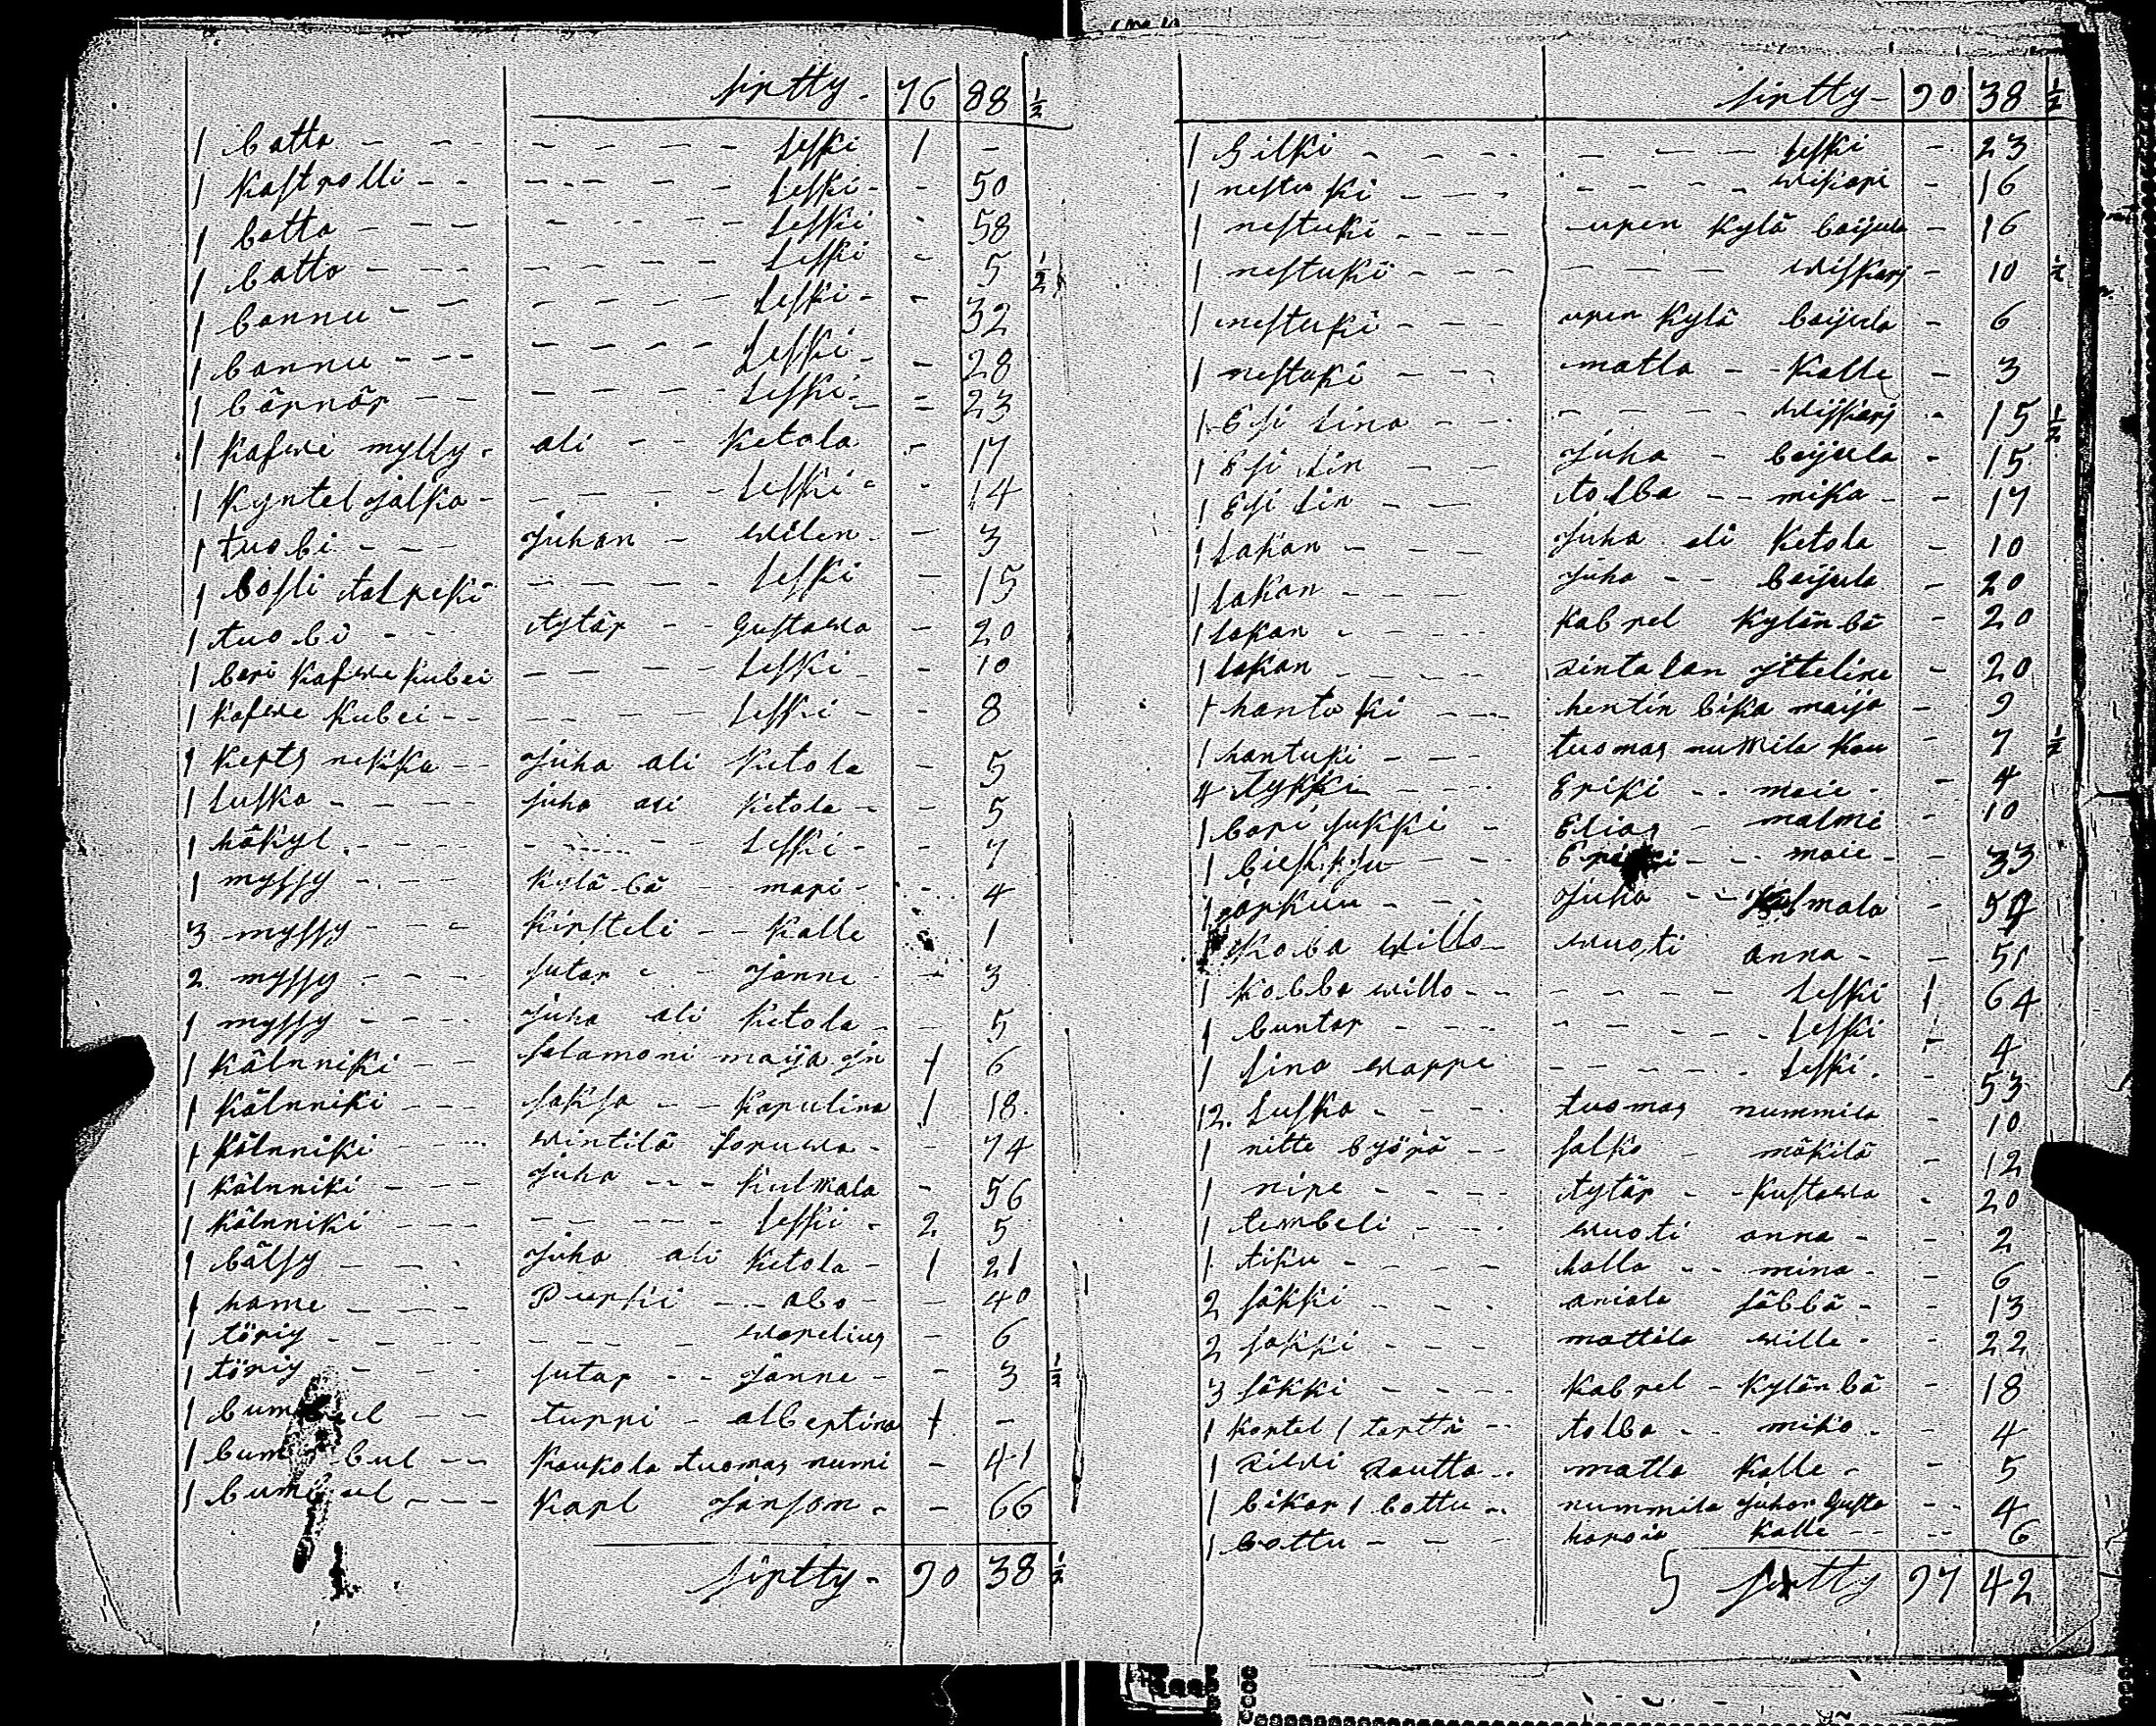 sirtty - 76 88 ½
1 batta - - - - - - - Leski 1 -
1 Kastrolli - - - - - - - Leski - - 50
1 batta - - - - - - - Leski - 58
1 batta - - - - - - - Leski - 5 ½
1 bannu - - - - - - - Leski - - 32
1 bannu - - - - - - - Leski - - 28
1 bärnär - - - - - - Leski - - 23
1 Kafwi mylly - ali - - Ketola - 17
1 Kyntel jalka - - - - - Leski - - 14
1 tuobi - - - Juhan - wilen - - 3
1 bosli talreki - - - - Leski - 15
1 tuobi - - - tytär - - Gustawa - 20
1 bari Kafwe kubei - - - - Leski - - 10
1 Kafwe Kubei - - - - - - Leski - - 8
1 Kerts nekka - - Juha ali Ketola - 5
1 Luska - - - - Juha ali Ketola - - 5
1 häkyl - - - - - - - Leski - - 7
1 myssy - - - - Kylä bä - mari - - 4
3 myssy - - - Kirsteli - - Kalle 1
2 myssy - - - - sutar - - Janne - - 3
1 myssy - - - - Juha ali Ketola - - 5
1 Kälnniki - - - Salamoni maija 1 6
1 Kälnniki - - - saksa - - Karulina 1 18
1 Kälnniki - - - wintilä - - 74
1 Kälnniki - - - Juha - - - Kulmala - 56
1 Kälnniki - - - - - - - - Leski - 2 5
1 bälsy - - - - Juha ali Ketola - 1 21
1 hame - - - - abo - - 40
1 töriy - - - - - - - - warelius - 6
1 töriy - - - - sutar - - Janne - - 3 ½
1 - - turri - albertina 1 -
1 bul - - Kaukola tuomas numi - 41
1 - - - Karl Janson - - 66
sirtty - 90 38 ½
sirtty - 90 38 ½
1 Silki - - - - - - - - Leski - 23
1 nestuki - - - - - - - wiskari - 16
1 nestuki - - - - uren Kylä baijula - 16
1 nestuki - - - - - - - wiskarj - 10 ½
1 nestuki - - - - uren Kylä baijula - 6
1 nestuki - - - - matla - - Kalle - 3
1 Esi Lina - - - - - - - wiskarj - 15 ½
1 Esi Lin - - Juha - baijula - 15
1 Esi Lin - - tolba - - mika - - 17
1 Lakan - - - Juha ali Ketola - 10
1 Lakan - - - Juha - - baijula - 20
1 Lakan - - - - Kabrel Kylänbä - 20
1 Lakan - - - - - 20
1 hantuki - - - hentin bika maija - 9
1 hantuki - - - tuomas nummila - 7 ½
4 tykki - - - - Eriki - - maie - - 4
1 bari sukki - Elias - malmi - 10
1 - - - - - maie - - 33
1 arkuu - - - Juha - -
1 Koba willo - wuoti anna - - 51
1 Kobba willo - - - - - - - Leski 1 64
1 buntar - - - - - - - - Leski - 4
1 Lina warre - - - - - - Leski - - 53
12 Luska - - - - tuomas nummila - 10
1 nitte byörä - - salko - mäkilä - 12
1 nire - - - - tytär - - Kustawa - 20
1 tembeli - - - wuoti anna - - 2
1 tiku - - - - halla - - mina - - 6
2 säkki - - - aniala säbbä - - 13
2 säkki - - - - mattila wille - - 22
3 säkki - - - - Kabrel - Kylänbä - 18
1 Kortel 1 tortti - - tolba - - miko - - 4
1 rautta - - matla Kalle - - 5
1 bikar 1 bottu - - nummila Juhan Gusta - - 4
1 bottu - - - - Kalle - - - 6
sirtty 97 42